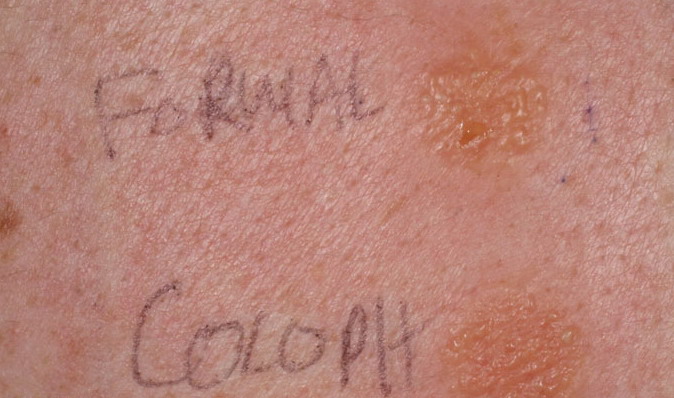 FoRMAL
COLOPH